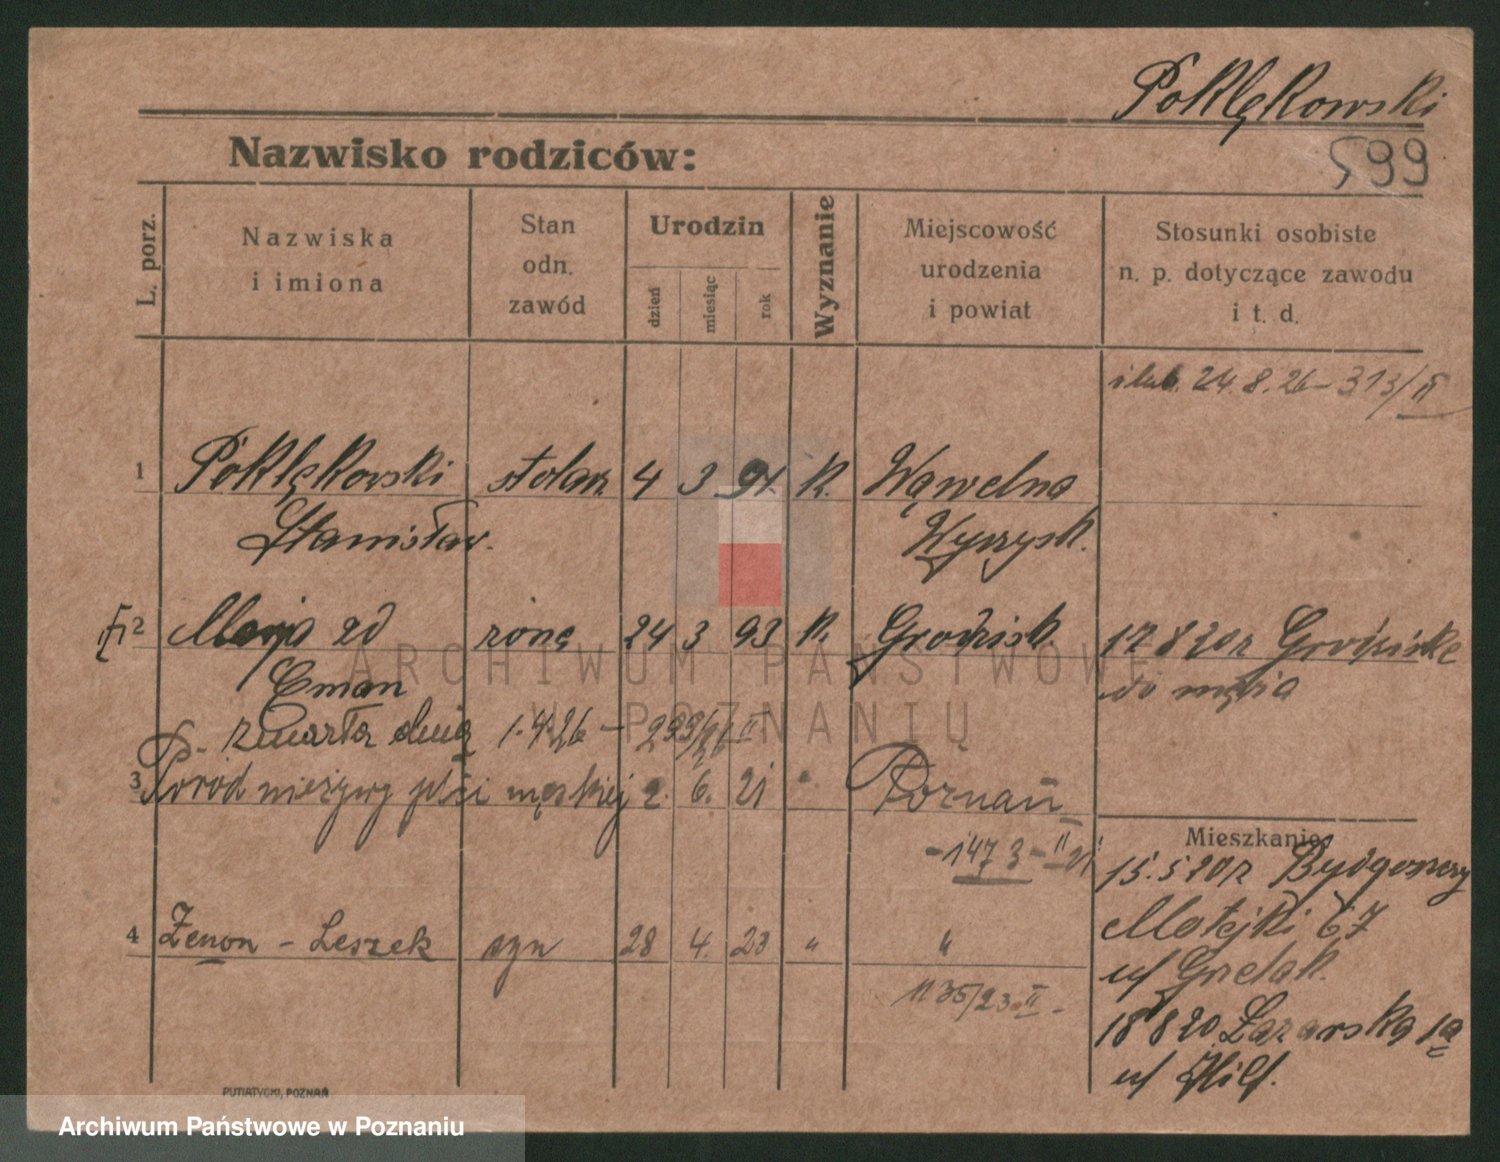 Poklękowski
Nazwisko rodziców:
599
L. porz.
Nazwiska
i imiona
Stan
odn.
zawód
Urodzin
dzień
miesiąc
rok
Wyznanie
Miejscowość
urodzenia
i powiat
Stosunki osobiste
n. p. dotyczące zawodu
i t. d.
24.8.26 – 313/II
1 Poklękowski stolarz 4 3 91 K. Wąwelna
Stanisław. Wyrzysk.
2 Marja zd żona 24 3 93 K. Grodzisk. 17.8 20 r Grodziska
Eman do męża
zmarła dnia 1.4.26 –
3 Poród nieżywy płci męskiej 2. 6. 21 " Poznań
Mieszkanie
- 1473 - II 21
15.5 20 r Bydgoszczy
4 Zenon - Leszek syn 28 4. 23 " "
Matejki 67
u/ Grelak.
1135/23 II -
18 8 20 Łazarska 1a
u/ Hilf.
PUTIATYCKI, POZNAŃ
ARCHIWUM PAŃSTWOWE
W POZNANIU
Archiwum Państwowe w Poznaniu